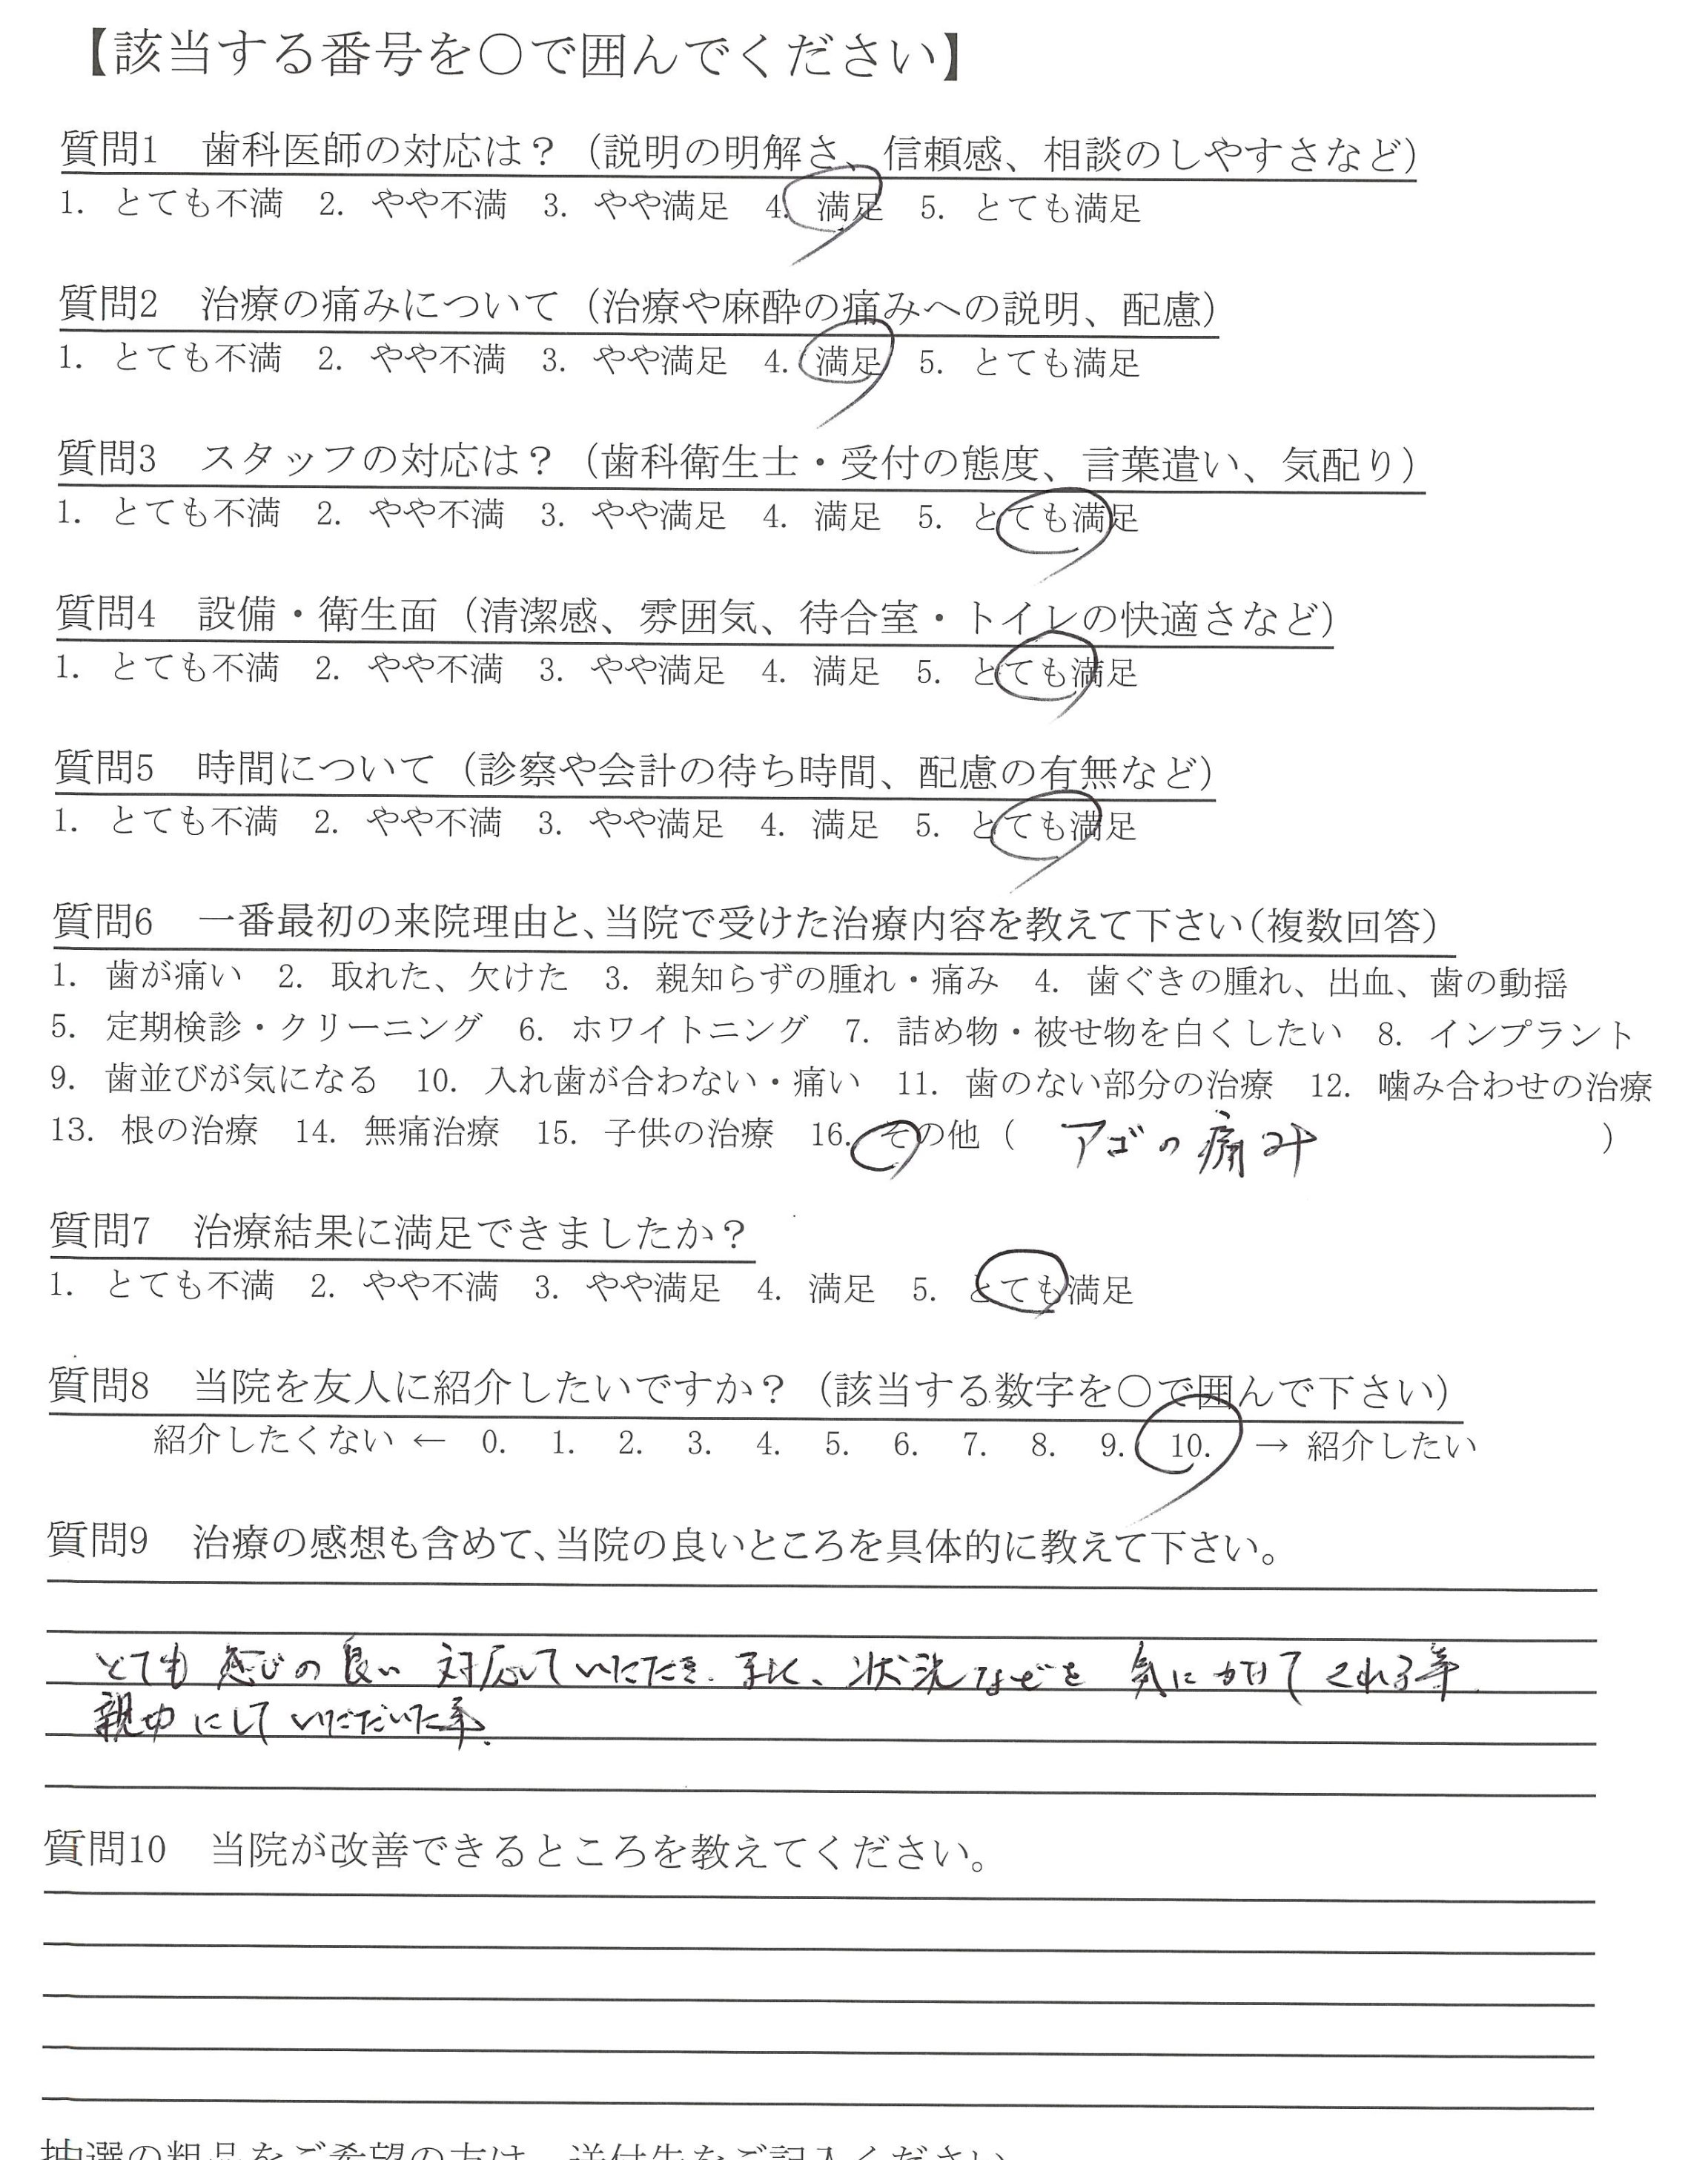 【該当する番号を○で囲んでください】
質問1 歯科医師の対応は？（説明の明解さ、信頼感、相談のしやすさなど）
1. とても不満 2. やや不満 3. やや満足 4. 満足 5. とても満足
質問2 治療の痛みについて（治療や麻酔の痛みへの説明、配慮）
1. とても不満 2. やや不満 3. やや満足 4. 満足 5. とても満足
質問3 スタッフの対応は？（歯科衛生士・受付の態度、言葉遣い、気配り）
1. とても不満 2. やや不満 3. やや満足 4. 満足 5. とても満足
質問4 設備・衛生面（清潔感、雰囲気、待合室・トイレの快適さなど）
1. とても不満 2. やや不満 3. やや満足 4. 満足 5. とても満足
質問5 時間について（診察や会計の待ち時間、配慮の有無など）
1. とても不満 2. やや不満 3. やや満足 4. 満足 5. とても満足
質問6 一番最初の来院理由と、当院で受けた治療内容を教えて下さい（複数回答）
1. 歯が痛い 2. 取れた、欠けた 3. 親知らずの腫れ・痛み 4. 歯ぐきの腫れ、出血、歯の動揺
5. 定期検診・クリーニング 6. ホワイトニング 7. 詰め物・被せ物を白くしたい 8. インプラント
9. 歯並びが気になる 10. 入れ歯が合わない・痛い 11. 歯のない部分の治療 12. 噛み合わせの治療
13. 根の治療 14. 無痛治療 15. 子供の治療 16. その他（ アゴの痛み ）
質問7 治療結果に満足できましたか？
1. とても不満 2. やや不満 3. やや満足 4. 満足 5. とても満足
質問8 当院を友人に紹介したいですか？（該当する数字を○で囲んで下さい）
紹介したくない ← 0. 1. 2. 3. 4. 5. 6. 7. 8. 9. 10. → 紹介したい
質問9 治療の感想も含めて、当院の良いところを具体的に教えて下さい。
とても感じの良い対応していただき、また、状況などを気にかけてくれる等
親切にしていただいた事.
質問10 当院が改善できるところを教えてください。
抽選の粗品をご希望の方は、送付先をご記入ください